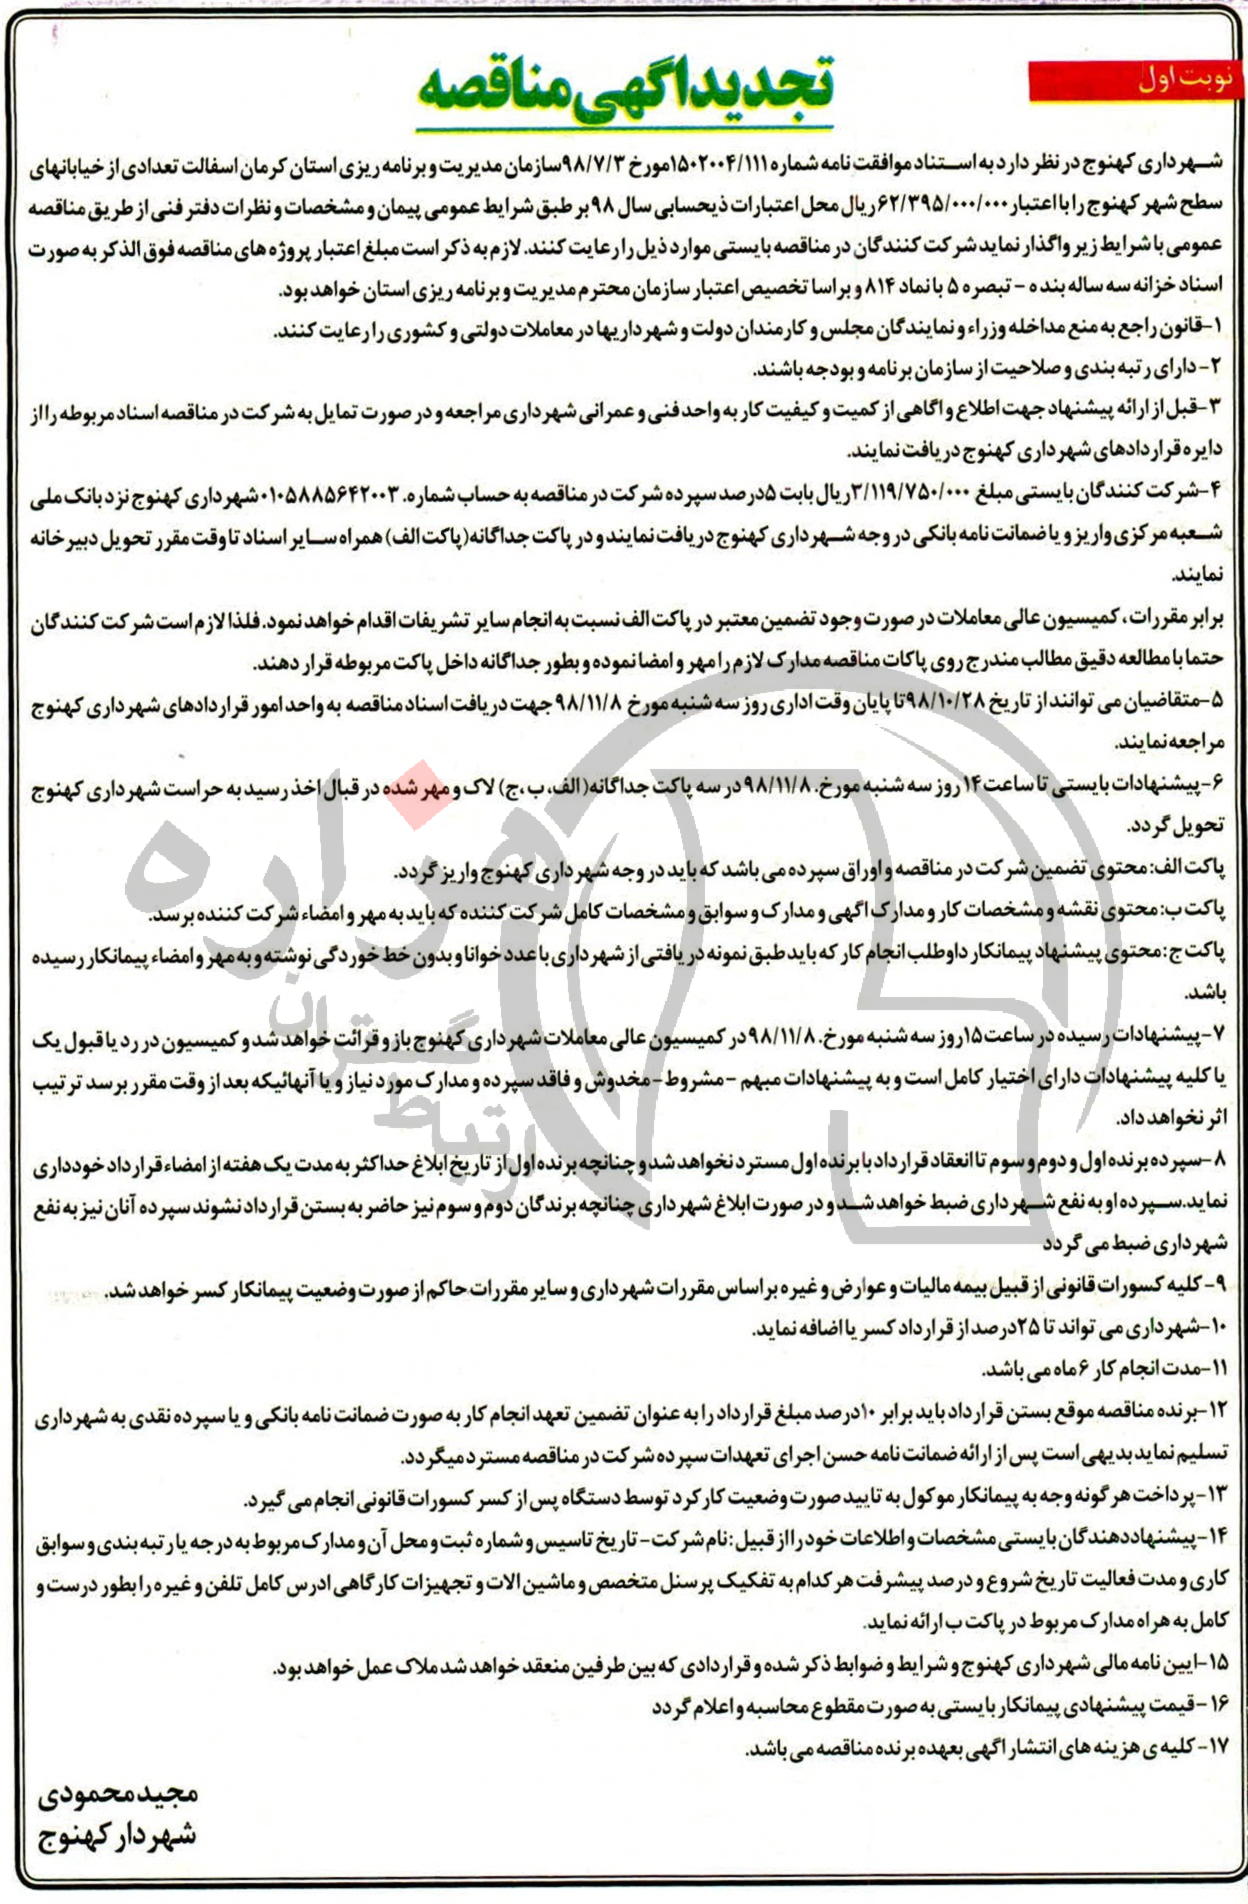 نوبت اول
تجدید اگهی مناقصه
شهرداری کهنوج در نظر دارد به استناد موافقت نامه شماره ۱۵۰۲۰۰۴/۱۱۱مورخ ۹۸/۷/۳سازمان مدیریت و برنامه ریزی استان کرمان اسفالت تعدادی از خیابانهای
سطح شهر کهنوج را با اعتبار ۶۲/۳۹۵/۰۰۰/۰۰۰ریال محل اعتبارات ذیحسابی سال ۹۸ بر طبق شرایط عمومی پیمان و مشخصات و نظرات دفتر فنی از طریق مناقصه
عمومی با شرایط زیر واگذار نماید شرکت کنندگان در مناقصه بایستی موارد ذیل را رعایت کنند. لازم به ذکر است مبلغ اعتبار پروژه های مناقصه فوق الذکر به صورت
اسناد خزانه سه ساله بنده - تبصره ۵ با نماد ۸۱۴ و براسا تخصیص اعتبار سازمان محترم مدیریت و برنامه ریزی استان خواهد بود.
۱-قانون راجع به منع مداخله وزراء و نمایندگان مجلس و کارمندان دولت و شهرداریها در معاملات دولتی و کشوری را رعایت کنند.
۲- دارای رتبه بندی و صلاحیت از سازمان برنامه و بودجه باشند.
۳-قبل از ارائه پیشنهاد جهت اطلاع و اگاهی از کمیت و کیفیت کار به واحد فنی و عمرانی شهرداری مراجعه و در صورت تمایل به شرکت در مناقصه اسناد مربوطه را از
دایره قراردادهای شهرداری کهنوج دریافت نمایند.
۴-شرکت کنندگان بایستی مبلغ ۳/۱۱۹/۷۵۰/۰۰۰ریال بابت ۵درصد سپرده شرکت در مناقصه به حساب شماره. ۰۱۰۵۸۸۵۶۴۲۰۰۳شهرداری کهنوج نزد بانک ملی
شعبه مرکزی واریز و یا ضمانت نامه بانکی در وجه شهرداری کهنوج دریافت نمایند و در پاکت جداگانه(پاکت الف) همراه سایر اسناد تا وقت مقرر تحویل دبیرخانه
نمایند.
برابر مقررات، کمیسیون عالی معاملات در صورت وجود تضمین معتبر در پاکت الف نسبت به انجام سایر تشریفات اقدام خواهد نمود. فلذا لازم است شرکت کنندگان
حتما با مطالعه دقیق مطالب مندرج روی پاکات مناقصه مدارک لازم را مهر و امضا نموده و بطور جداگانه داخل پاکت مربوطه قرار دهند.
۵-متقاضیان می توانند از تاریخ ۹۸/۱۰/۲۸تا پایان وقت اداری روز سه شنبه مورخ ۹۸/۱۱/۸جهت دریافت اسناد مناقصه به واحد امور قراردادهای شهرداری کهنوج
مراجعه نمایند.
۶-پیشنهادات بایستی تا ساعت ۱۴ روز سه شنبه مورخ. ۹۸/۱۱/۸در سه پاکت جداگانه( الف، ب ،ج) لاک و مهر شده در قبال اخذ رسید به حراست شهرداری کهنوج
تحویل گردد.
پاکت الف: محتوی تضمین شرکت در مناقصه و اوراق سپرده می باشد که باید در وجه شهرداری کهنوج واریز گردد.
پاکت ب: محتوی نقشه و مشخصات کار و مدارک اگهی و مدارک و سوابق و مشخصات کامل شرکت کننده که باید به مهر و امضاء شرکت کننده برسد.
پاکت ج: محتوی پیشنهاد پیمانکار داوطلب انجام کار که باید طبق نمونه دریافتی از شهرداری با عدد خوانا و بدون خط خوردگی نوشته و به مهر و امضاء پیمانکار رسیده
باشد.
۷-پیشنهادات رسیده در ساعت ۱۵روز سه شنبه مورخ. ۹۸/۱۱/۸ در کمیسیون عالی معاملات شهرداری کهنوج باز و قرائت خواهد شد و کمیسیون در رد یا قبول یک
یا کلیه پیشنهادات دارای اختیار کامل است و به پیشنهادات مبهم -مشروط- مخدوش و فاقد سپرده و مدارک مورد نیاز و یا آنهائیکه بعد از وقت مقرر برسد ترتیب
اثر نخواهد داد.
۸-سپرده برنده اول و دوم و سوم تا انعقاد قرارداد با برنده اول مسترد نخواهد شد و چنانچه برنده اول از تاریخ ابلاغ حداکثر به مدت یک هفته از امضاء قرارداد خودداری
نماید.سپرده او به نفع شهرداری ضبط خواهد شد و در صورت ابلاغ شهرداری چنانچه برندگان دوم و سوم نیز حاضر به بستن قرارداد نشوند سپرده آنان نیز به نفع
شهرداری ضبط می گردد
۹- کلیه کسورات قانونی از قبیل بیمه مالیات و عوارض و غیره بر اساس مقررات شهرداری و سایر مقررات حاکم از صورت وضعیت پیمانکار کسر خواهد شد.
۱۰-شهرداری می تواند تا ۲۵درصد از قرارداد کسر یا اضافه نماید.
۱۱-مدت انجام کار ۶ ماه می باشد.
۱۲-برنده مناقصه موقع بستن قرارداد باید برابر ۱۰درصد مبلغ قرارداد را به عنوان تضمین تعهد انجام کار به صورت ضمانت نامه بانکی و یا سپرده نقدی به شهرداری
تسلیم نماید بدیهی است پس از ارائه ضمانت نامه حسن اجرای تعهدات سپرده شرکت در مناقصه مسترد میگردد.
۱۳-پرداخت هر گونه وجه به پیمانکار موکول به تایید صورت وضعیت کارکرد توسط دستگاه پس از کسر کسورات قانونی انجام می گیرد.
۱۴-پیشنهاددهندگان بایستی مشخصات و اطلاعات خود را از قبیل :نام شرکت- تاریخ تاسیس و شماره ثبت و محل آن و مدارک مربوط به درجه یا رتبه بندی و سوابق
کاری و مدت فعالیت تاریخ شروع و درصد پیشرفت هر کدام به تفکیک پرسنل متخصص و ماشین الات و تجهیزات کارگاهی ادرس کامل تلفن و غیره را بطور درست و
کامل به همراه مدارک مربوط در پاکت ب ارائه نماید.
۱۵-ایین نامه مالی شهرداری کهنوج و شرایط و ضوابط ذکر شده و قراردادی که بین طرفین منعقد خواهد شد ملاک عمل خواهد بود.
۱۶- قیمت پیشنهادی پیمانکار بایستی به صورت مقطوع محاسبه و اعلام گردد
۱۷- کلیه ی هزینه های انتشار اگهی بعهده برنده مناقصه می باشد.
مجید محمودی
شهردار کهنوج
هزاره
ارتباط گستران